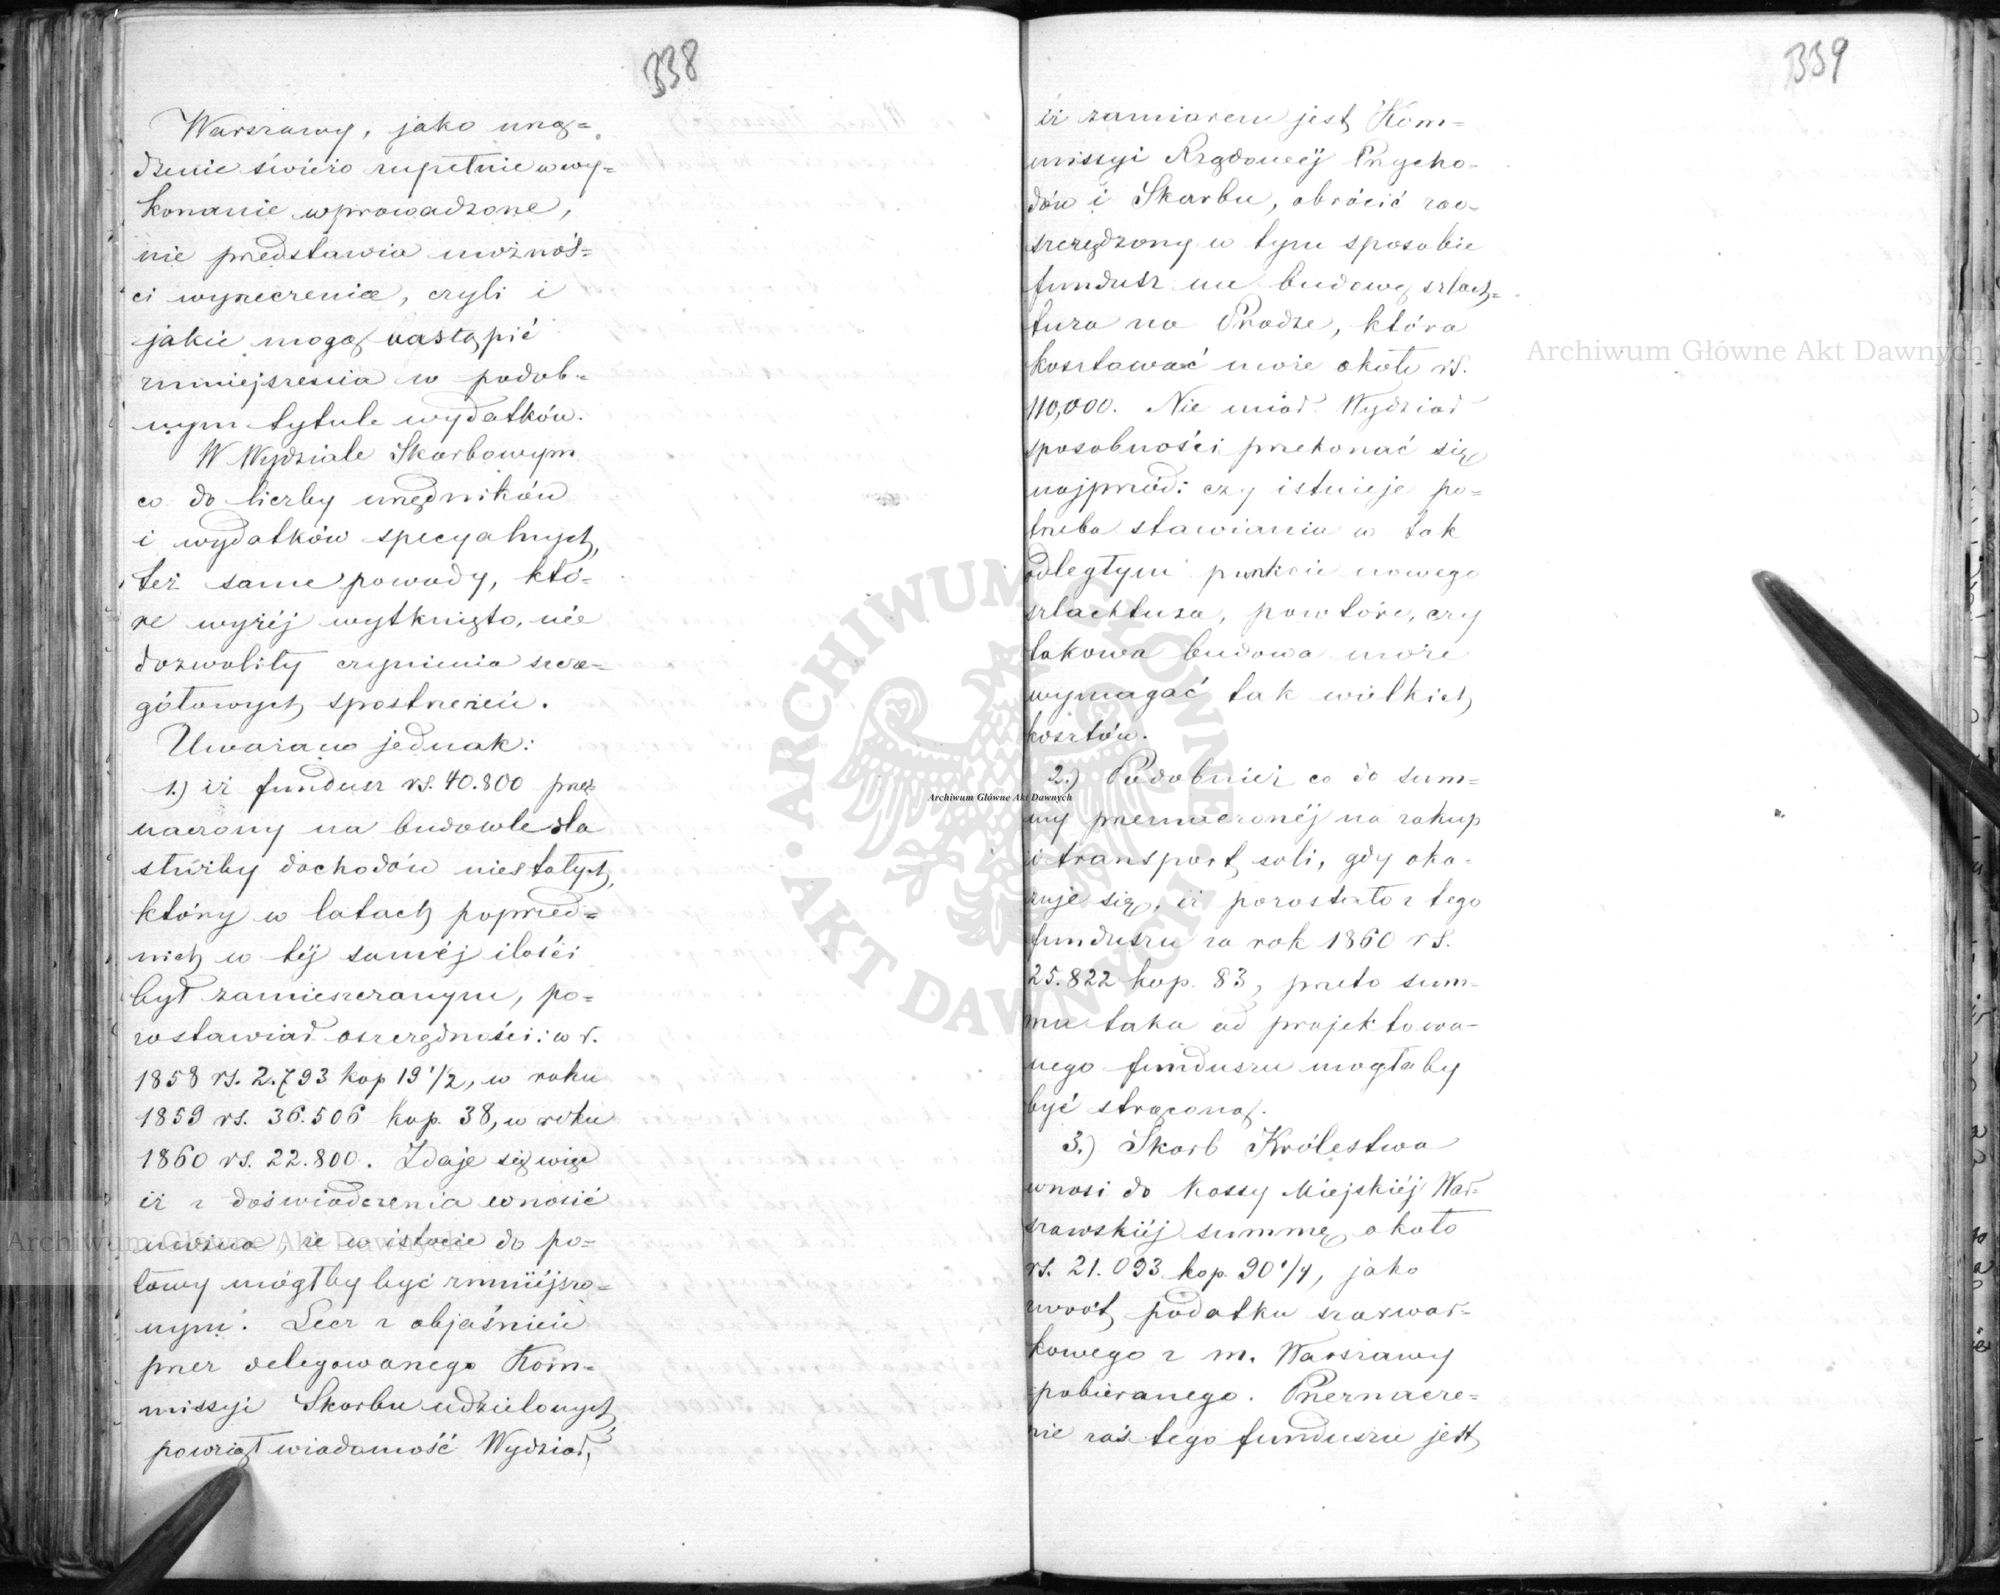 338
Warszawy, jako urzą=
dzenie świéżo zupełnie w wy=
konanie wprowadzone,
nie przedstawia możnoś=
ci wyrzeczenia, czyli i
jakie mogą nastąpić
zmniejszenia w podob=
nym tytule wydatków.
W Wydziale Skarbowym
co do liczby urzędników
i wydatków specyalnych,
też same powody, któ=
re wyżéj wytknięto, nie
dozwoliły czynienia szcze=
gółowych spostrzeżeń.
Uważano jednak:
1.) iż fundusz rs. 40.800 prze=
naczony na budowle dla
służby dochodów niestałych,
który w latach poprzed=
nich w téj saméj ilości
był zamieszczanym, po=
zostawiał oszczędności: w r.
1858 rs. 2.793 kop 19 1/2, w roku
1859 rs. 36.506 kop. 38, w roku
1860 rs. 22.800. Zdaje się więc
iż z doświadczenia wnosić
można, że w istocie do po=
łowy mógłby być zmniejszo=
nym. Lecz z objaśnień
przez delegowanego Kom=
missyi Skarbu udzielonych
powziął wiadomość Wydział,
339
iż zamiarem jest Kom=
missyi Rządowéj Przycho=
dów i Skarbu, obrócić zao=
szczędzony w tym sposobie
fundusz na budowę szlach=
tuza na Pradze, która
kosztować może około rs.
110,000. Nie miał Wydział
sposobności przekonać się
najprzód: czy istnieje po=
trzeba stawiania w tak
odległym punkcie nowego
szlachtuza, powtóre, czy
takowa budowa może
wymagać tak wielkich
kosztów.
2.) Podobnież co do sum=
my przeznaczonéj na zakup
i transport soli, gdy oka=
zuje się, iż pozostało z tego
funduszu za rok 1860 rs.
25.822 kop. 83, przeto sum=
ma taka od projektowa=
nego funduszu mogłaby
być strąconą.
3.) Skarb Królestwa
wnosi do Kassy Miejskiéj War=
szawskiéj summę około
rs. 21.093 kop. 90 1/4, jako
zwrot podatku szarwar=
kowego z m. Warszawy
pobieranego. Przeznacze=
nie zaś tego funduszu jest
Archiwum Główne Akt Dawnych
Archiwum Główne Akt Dawnych
Archiwum Główne Akt Dawnych
ARCHIWUM GŁÓWNE AKT DAWNYCH